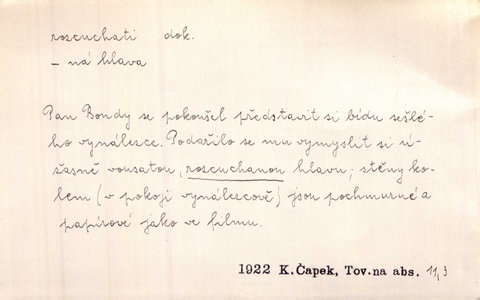 rozcuchati dok.
– ná hlava
Pan Bondy se pokoušel představit si bídu sešlé-
ho vynálezce. Podařilo se mu vymyslit si ú-
žasně vousatou, rozcuchanou hlavu; stěny ko-
lem (v pokoji vynálezcově) jsou pochmurné a
papírové jako ve filmu.
1922 K.Čapek, Tov.na abs. 11,3